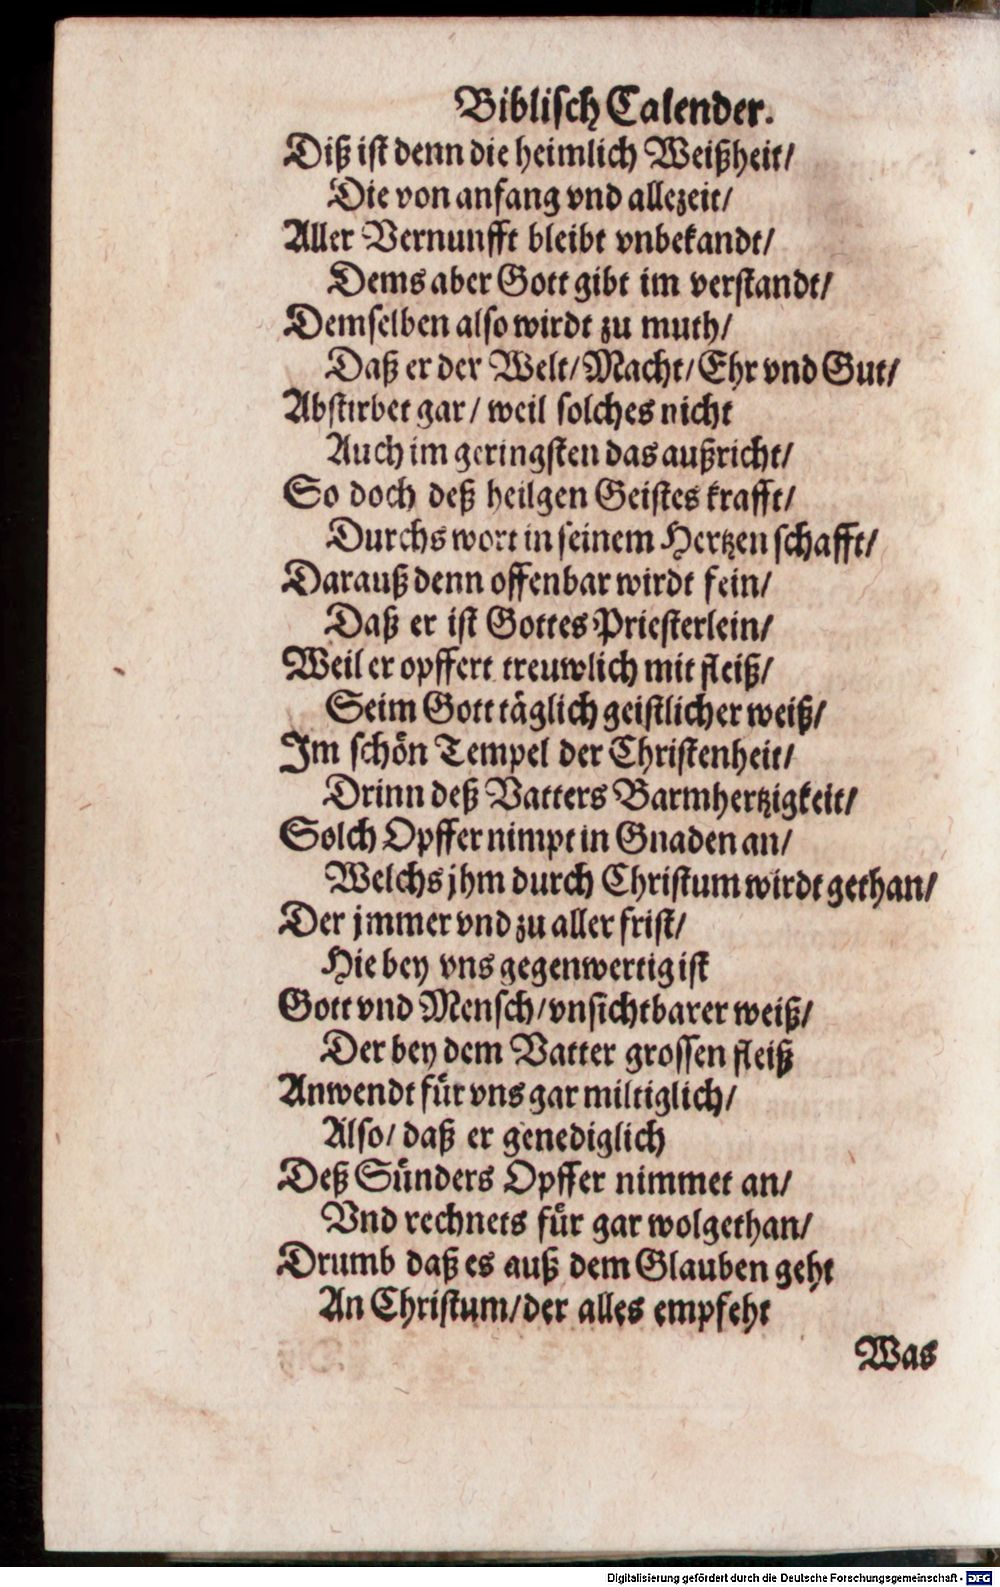 Biblisch Calender.
Diß ist denn die heimlich Weißheit/
Die von anfang vnd allezeit/
Aller Vernunfft bleibt vnbekandt/
Dems aber Gott gibt im verstandt/
Demselben also wirdt zu muth/
Daß er der Welt/Macht/Ehr vnd Gut/
Abstirbet gar/ weil solches nicht
Auch im geringsten das außricht/
So doch deß heilgen Geistes krafft/
Durchs wort in seinem Hertzen schafft/
Darauß denn offenbar wirdt fein/
Daß er ist Gottes Priesterlein/
Weil er opffert treuwlich mit fleiß/
Seim Gott täglich geistlicher weiß/
Im schön Tempel der Christenheit/
Drinn deß Vatters Barmhertzigkeit/
Solch Opffer nimpt in Gnaden an/
Welchs jhm durch Christum wirdt gethan/
Der jmmer vnd zu aller frist/
Hie bey vns gegenwertig ist
Gott vnd Mensch/vnsichtbarer weiß/
Der bey dem Vatter grossen fleiß
Anwendt für vns gar miltiglich/
Also/ daß er genediglich
Deß Sünders Opffer nimmet an/
Vnd rechnets für gar wolgethan/
Drumb daß es auß dem Glauben geht
An Christum/der alles empfeht
Was
Digitalisierung gefördert durch die Deutsche Forschungsgemeinschaft - DFG